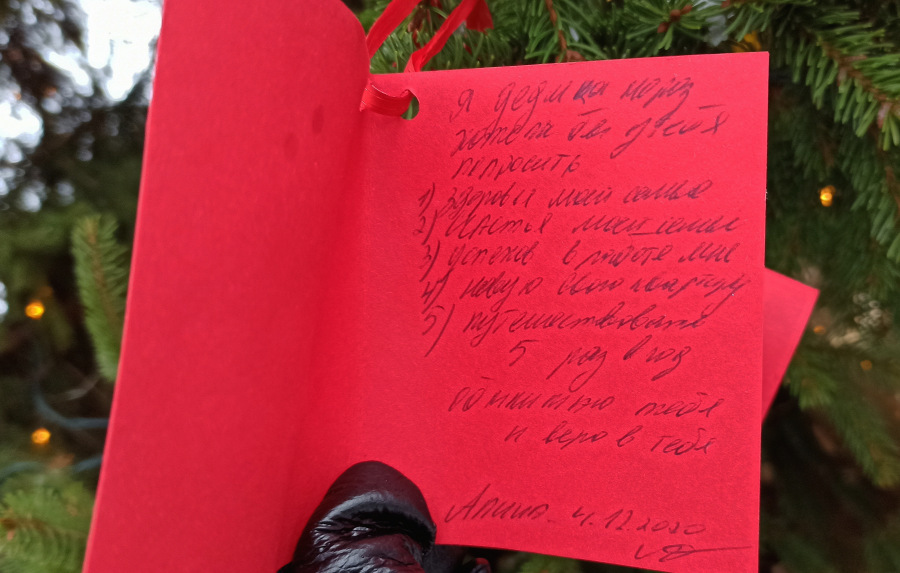 Я дедушка мороз
хотела бы у тебя
попросить
1) здоровья моей семье
2) Счастья моей семье
3) успехов в работе мне
4) новую свою квартиру
5) путешествовать
5 раз в год
обнимаю тебя
и верю в тебя
4.12.2020